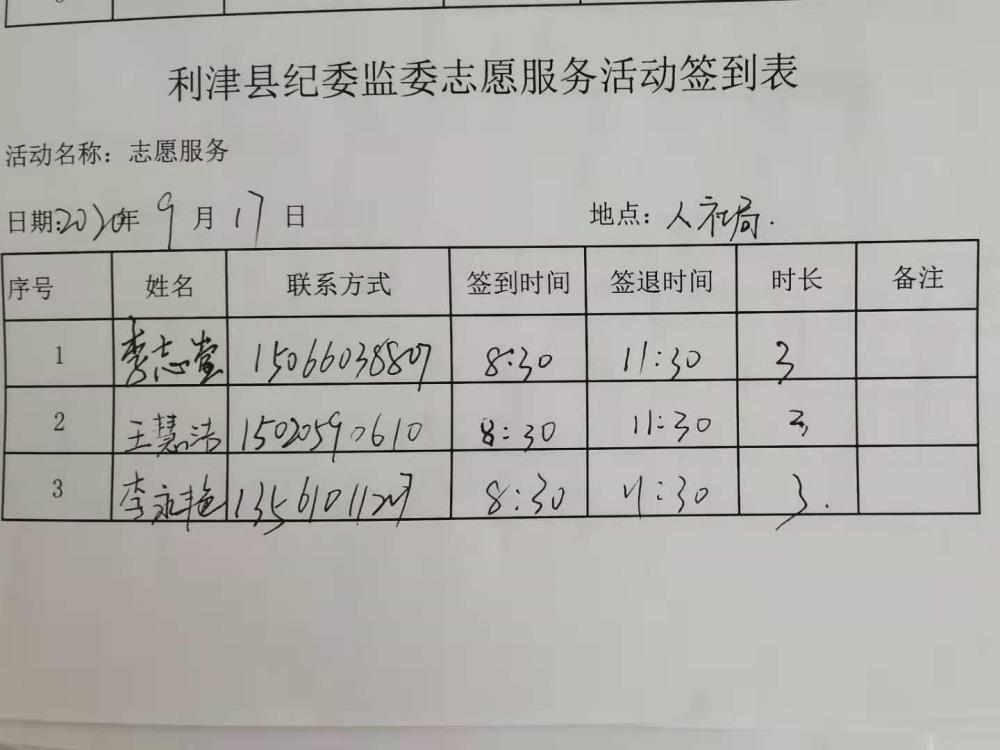 利津县纪委监委志愿服务活动签到表
活动名称：志愿服务
日期:2020年 9月 17日 地点：人社局.
序号 姓名 联系方式 签到时间 签退时间 时长 备注
1 李志堂 15066038807 8:30 11:30 3
2 王慧洁 15020590610 8:30 11:30 3
3 李永艳 8:30 11:30 3.